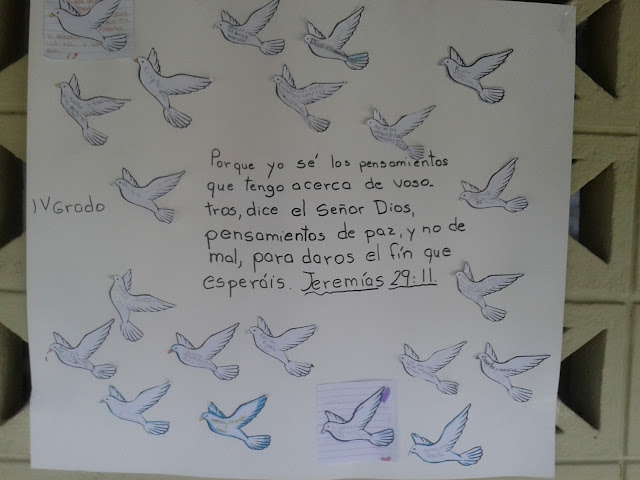 IV Grado
Porque yo sé los pensamientos
que tengo acerca de voso-
tros, dice el Señor Dios,
pensamientos de paz, y no de
mal, para daros el fín que
esperáis. Jeremías 29:11